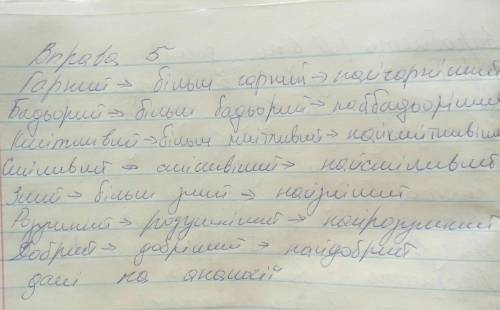 Вправа 5
Гарний → більш гарний → найгарніший
Бадьорий → більш бадьорий → найбадьоріший
Кмітливий → більш кмітливий → найкмітливіш
Сміливий → сміливіший → найсміливий
Злий → більш злий → найзліший
Розумний → розумніший → найрозумний
Добрий → добріший → найдобрий
далі на аналогії